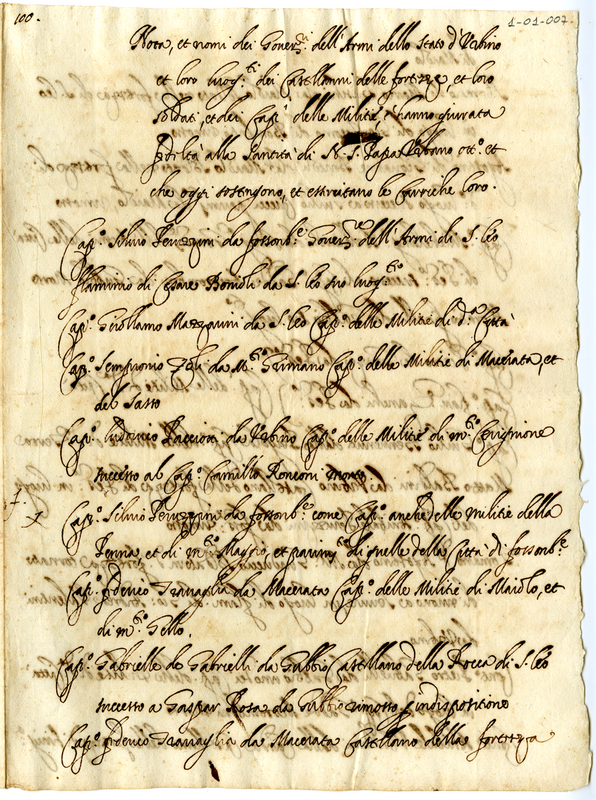 100.
1-01-007.
Nota, et nomi dei Gover.ri dell'Armi dello Stato d'Urbino
et loro luog.ti dei Castellani delle fortezze, et loro
soldati, et dei Cap.i delle Militie, c'hanno giurata
fedeltà alla Santità di N. S. Papa Urbano ott.o et
che oggi sostengono, et essercitano le Carriche loro.
Cap.o Silvio Peruzzini da fossomb.e Gover.re dell'Armi di S. leo
flaminio di Cesare Bonioli da S. leo suo luog.te
Cap.o Girollamo Mazzarini da S. leo Cap.o delle Militie di d.a Città
Cap.o Sempronio da M. Grimano Cap.o delle Militie di Macerata, et
del Sasso
Cap.o lodovico Paccioni da Urbino Cap.o delle Militie di m.te Cerignione
sucesso al Cap.o Camillo Ronconi morto
Cap.o Silvio Peruzzini da fossomb.e come Cap.o anche delle militie della
Penna, et di m.te Maggio, et parim.te di quelle della Città di fossomb.e
Cap.o federico Travaglia da Macerata Cap.o delle Militie di Maiolo, et
di m.te Gello.
Cap.o Gabrielle de Gabrielli da Gubbio Castellano della Rocca di S. leo
sucesso a Gaspar Rosa da Gubbio rimosso p indispositione
Cap.o federico Travaglia da Macerata Castellano della fortezza